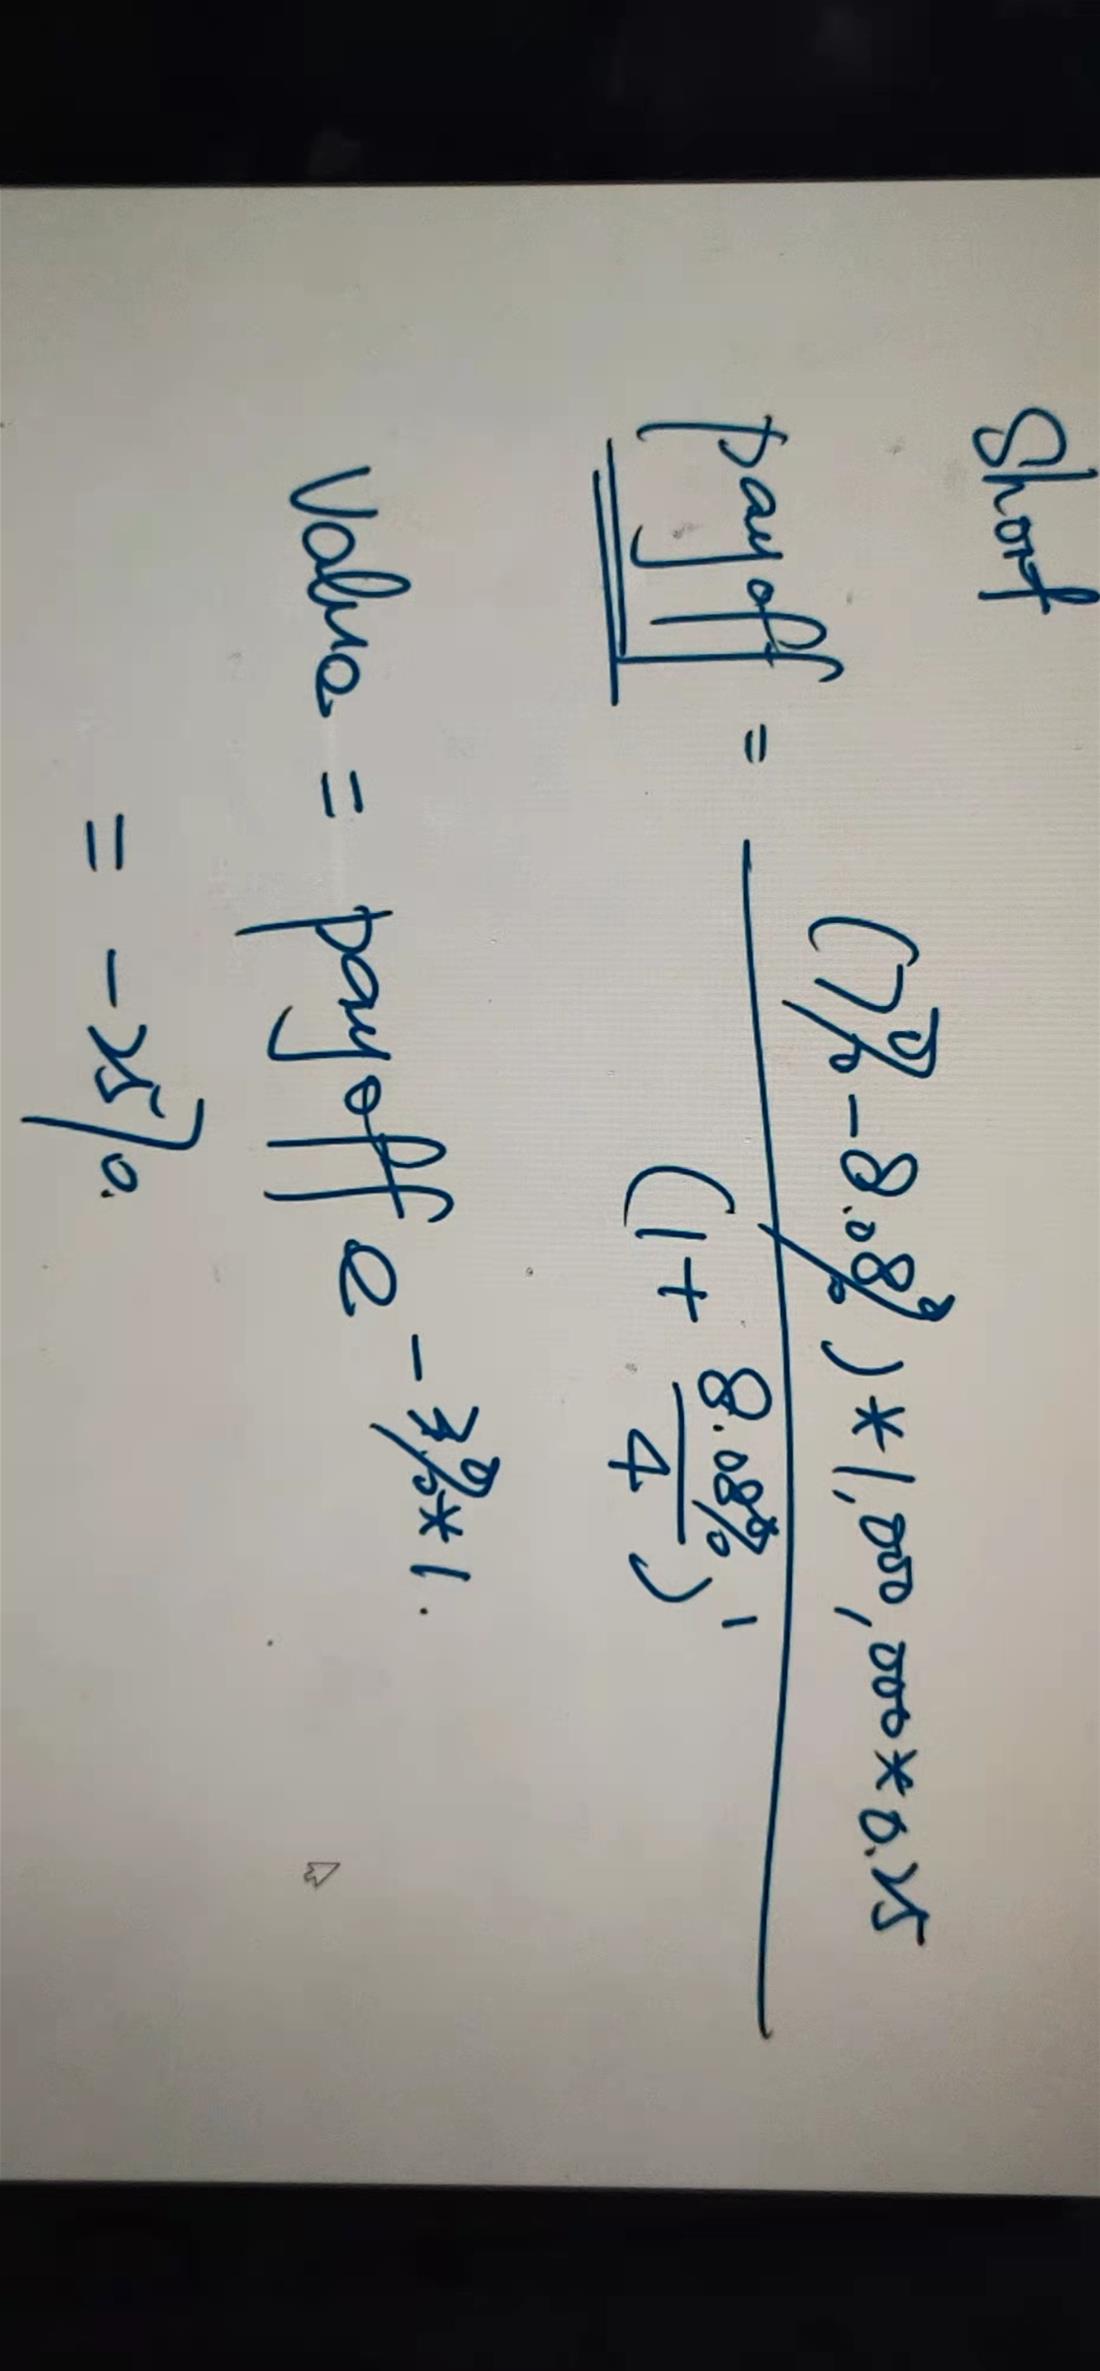 Short
payoff = (7% - 8.08%) * 1,000,000 * 0.25
(1 + 8.08%
4 )¹
Value = payoff e - 7% * 1.
= - 25%.